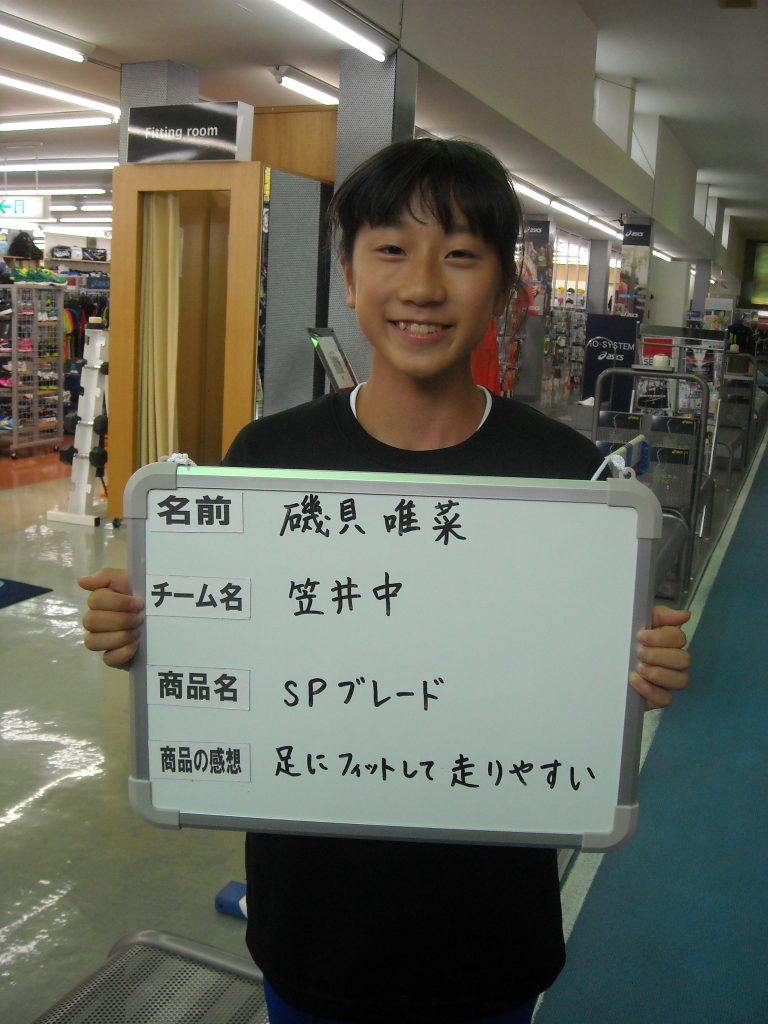 Fitting room
asics
asics
IO-SYSTEM
asics
名前 磯貝唯菜
チーム名 笠井中
商品名 SPブレード
商品の感想 足にフィットして走りやすい